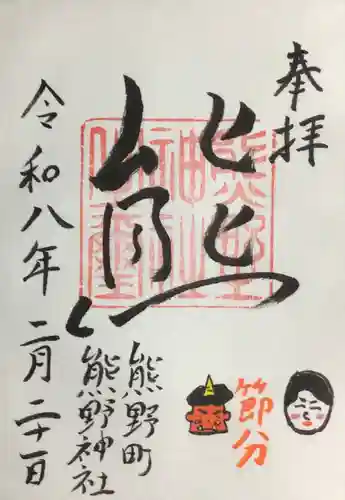 奉拝
熊
熊野神社
熊野町
熊野神社
節分
令和八年二月二十一日